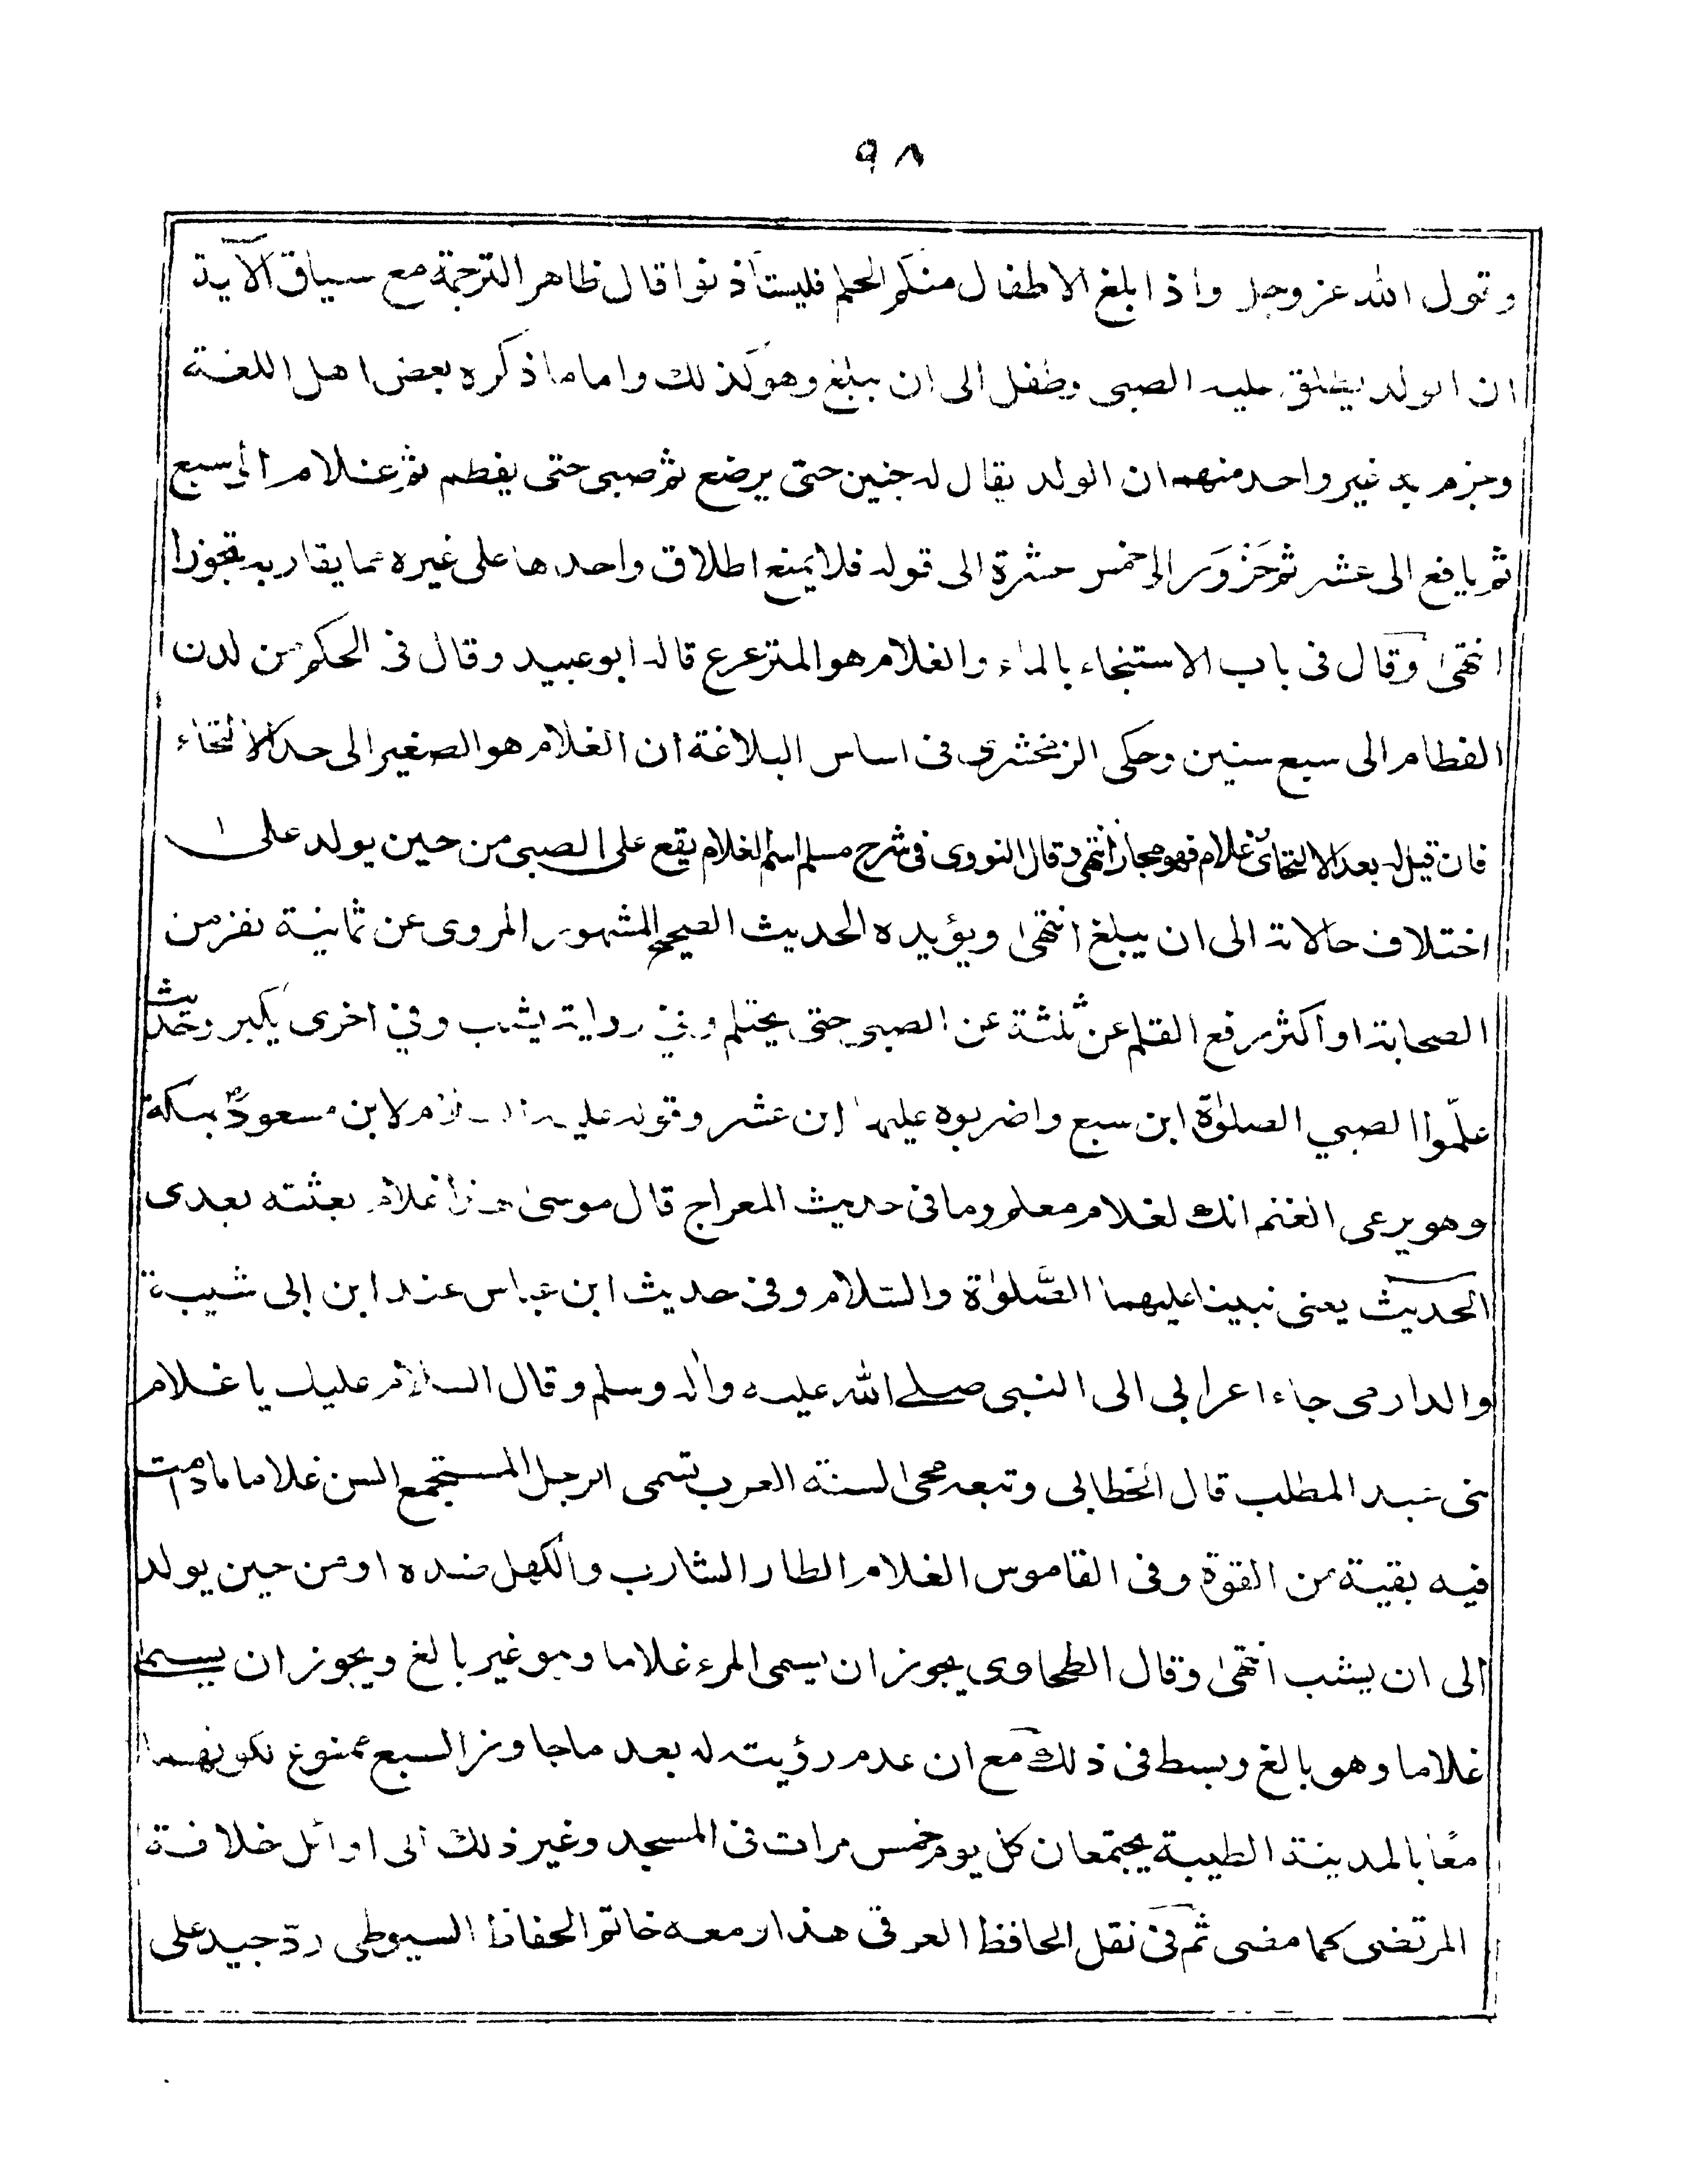 ٩٨
وقول الله عز وجل واذا بلغ الاطفال منكم الحلم فليستأذنوا قال ظاهر الترجمة مع سياق الآية
ان الولد يطلق عليه الصبى وطفل الى ان يبلغ وهو كذلك واما ما ذكره بعض اهل اللغة
وجزم به غير واحد منهم ان الولد يقال له جنين حتى يرضع ثم صبى حتى يفطم ثم غلام الى سبع
ثم يافع الى عشر ثم حَزْوَر الى خمس عشرة الى قوله فلا يمنع اطلاق واحدها على غيره مما يقاربه تجوزا
انتهىٰ وقال فى باب الاستنجاء بالماء والغلام هو المترعرع قاله ابو عبيد وقال فى المحكم من لدن
الفطام الى سبع سنين وحكى الزمخشرى فى اساس البلاغة ان الغلام هو الصغير الى حد الالتحاء
فان قيل له بعد الالتحائ غلام فهو مجاز انتهى وقال النووى فى شرح مسلم اسم الغلام يقع على الصبى من حين يولد على
اختلاف حالاته الى ان يبلغ انتهىٰ ويؤيده الحديث الصحيح المشهور المروى عن ثمانية نفر من
الصحابة او اكثر رفع القلم عن ثلثة عن الصبى حتى يحتلم وفى رواية يشب وفى اخرى يكبر وحديث
علّموا الصبي الصلوٰة ابن سبع واضربوه عليها ابن عشر وقوله عليه السلام لابن مسعود بمكة
وهو يرعى الغنم انك لغلام معلم وما فى حديث المعراج قال موسىٰ هذا غلام بعثته بعدى
الحديث يعنى نبينا عليهما الصَّلوٰة والسّلام وفى حديث ابن عباس عند ابن ابى شيبة
والدارمى جاء اعرابى الى النبى صلے الله عليه واٰله وسلم وقال السلام عليك يا غلام
بنى عبد المطلب قال الخطابى وتبعه محى السنة العرب تسمى الرجل المستجمع السن غلاما مادامت
فيه بقية من القوّة وفى القاموس الغلام الطار الشارب والكهل ضده او من حين يولد
الى ان يشب انتهىٰ وقال الطحاوى يجوز ان يسمى المرء غلاما وهو غير بالغ ويجوز ان يسمى
غلاما وهو بالغ وبسط فى ذلك مع ان عدم رؤيته له بعد ما جاوز السبع ممنوع لكونهما
معًا بالمدينة الطيبة يجتمعان كل يوم خمس مرات فى المسجد وغير ذلك الى اوائل خلافة
المرتضى كما مضى ثم فى نقل الحافظ العراقى هذا ومعه خاتم الحفاظ السيوطى ردّ جيد على